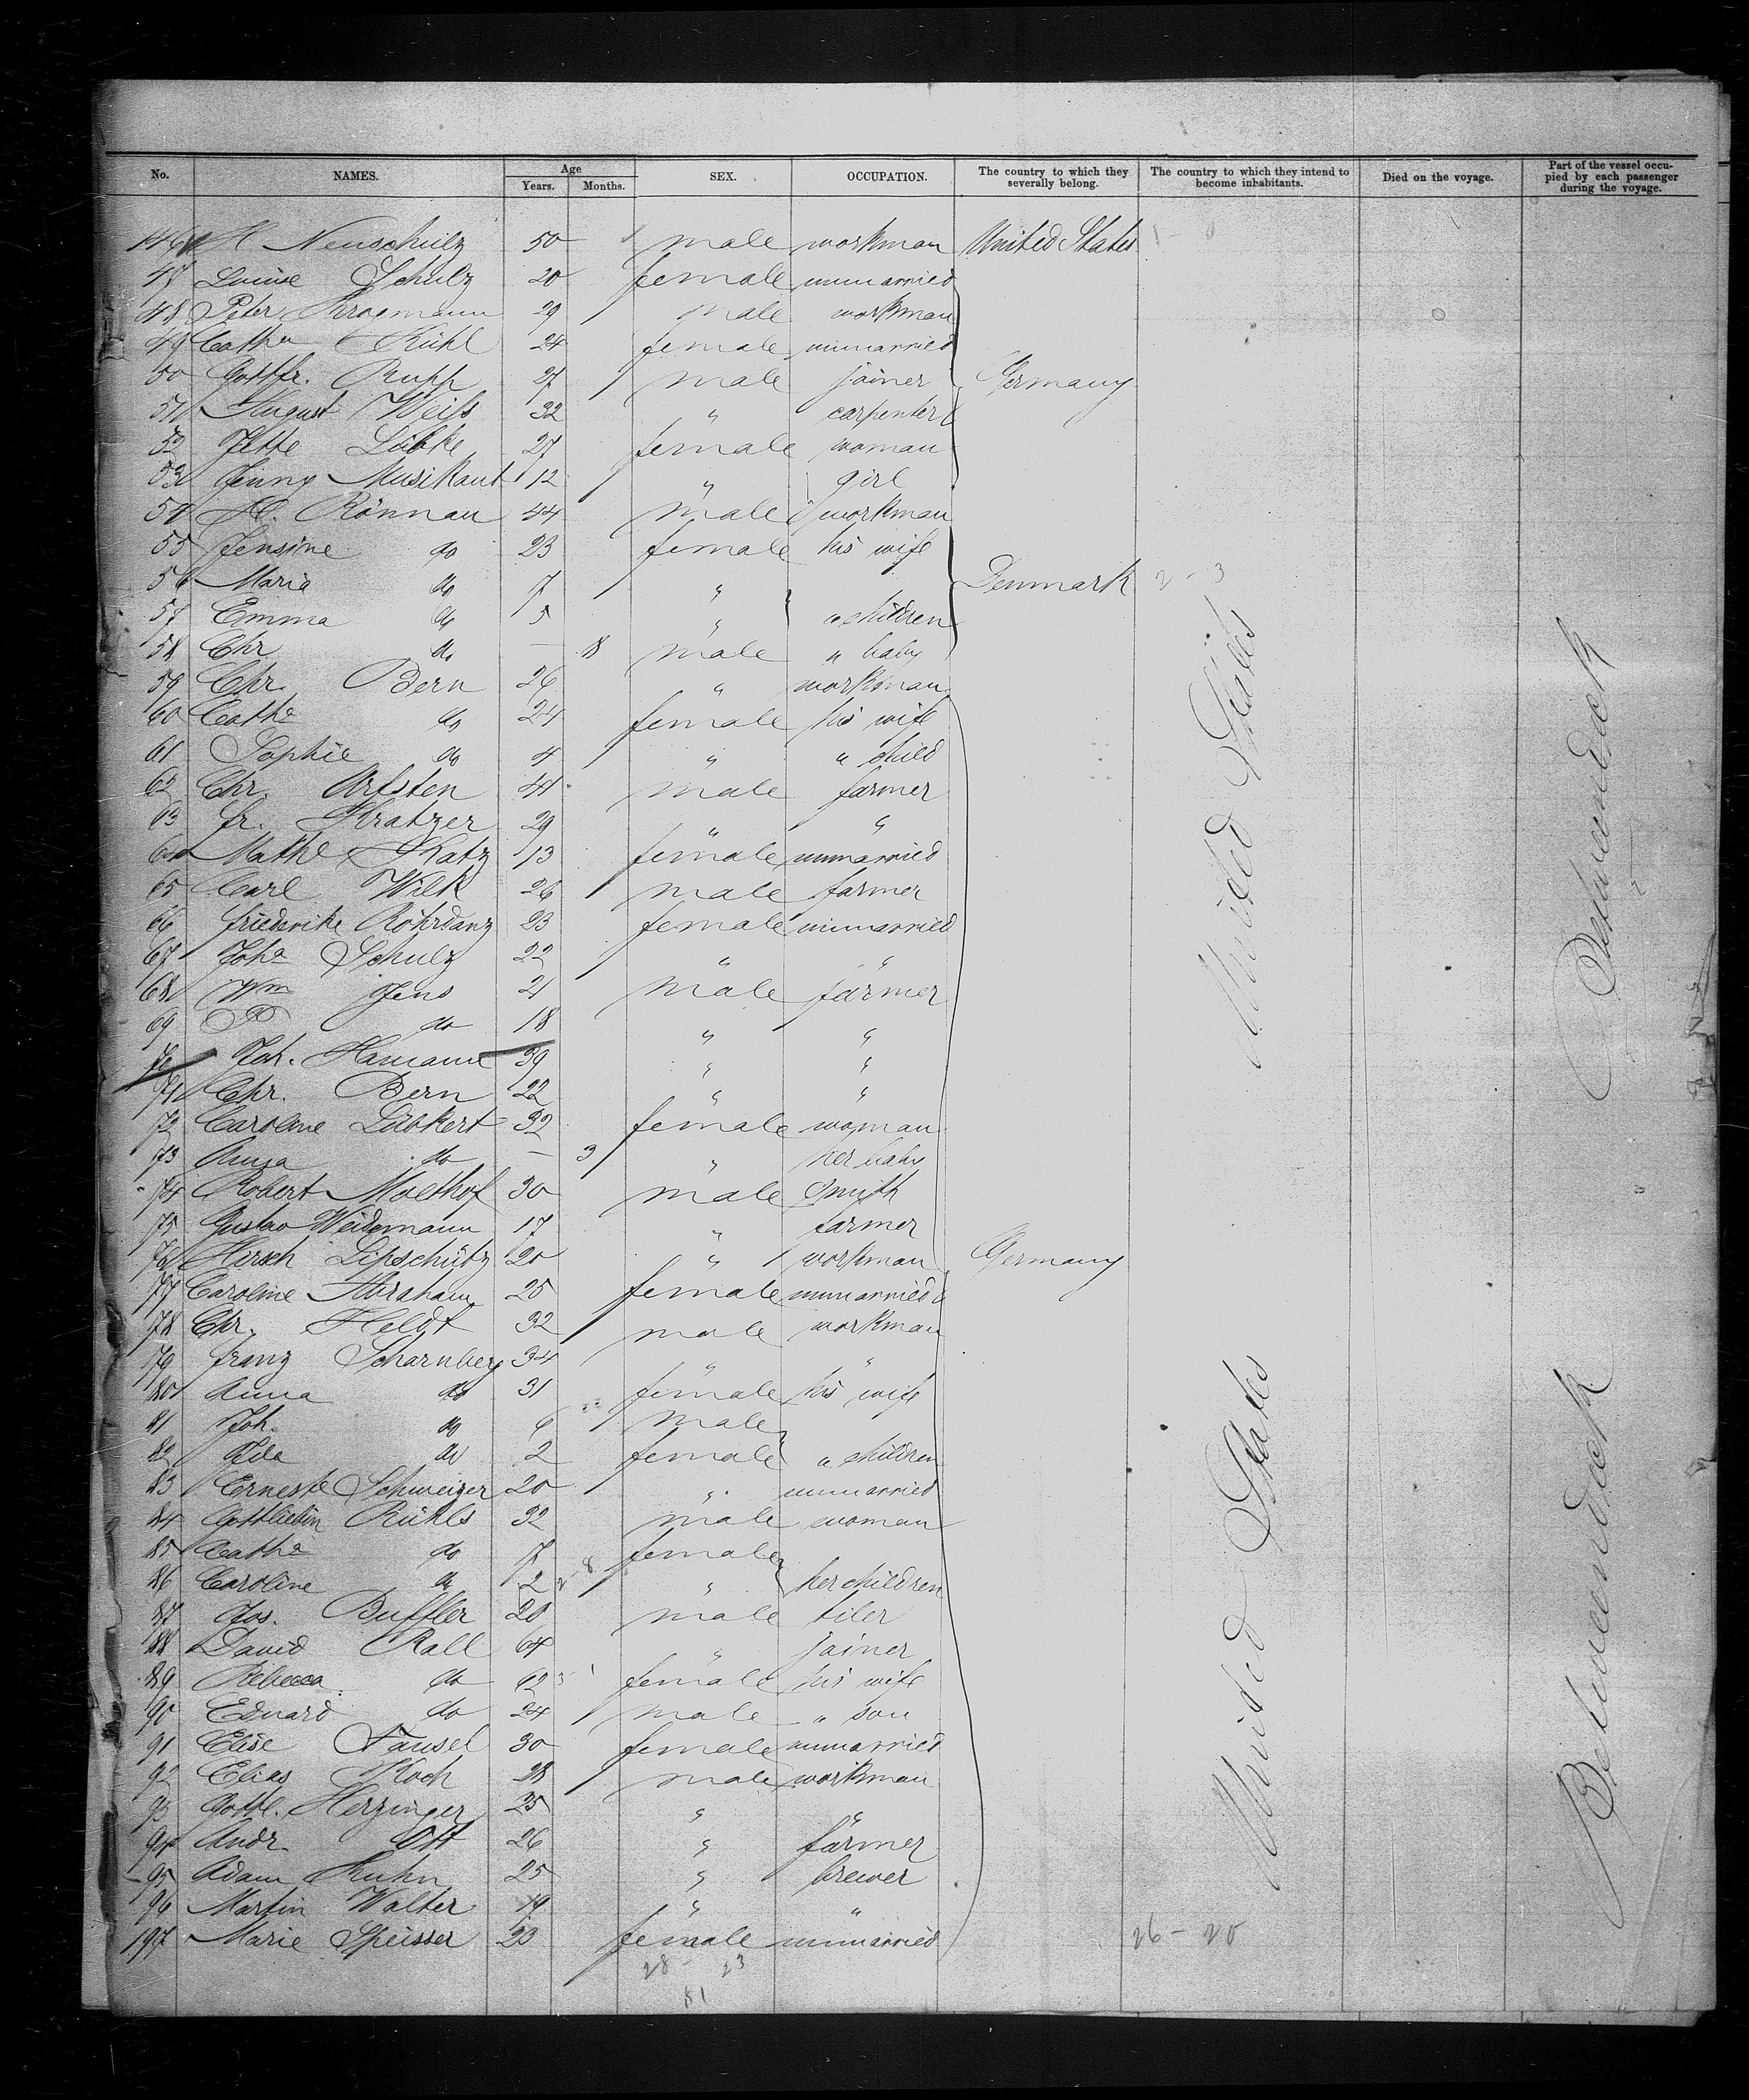 No. NAMES. Age Years. Months. SEX. OCCUPATION. The country to which they severally belong. The country to which they intend to become inhabitants. Died on the voyage. Part of the vessel occupied by each passenger during the voyage.
146 H Neuschulz 50 male workman United States
47 Louise Schulz 20 female unmarried
48 Peter Krogmann 29 male workman
49 Catha Kühl 24 female unmarried
50 Gottfr. Rupp 27 male joiner Germany
51 August Weiss 32 " carpenter
52 Jette Lübke 27 female woman
53 Jenny Musikant 12 " girl
54 H. Rönnau 44 male workman
55 Jensine do 23 female his wife
56 Marie do 7 " Denmark 2-3
57 Emma do 5 " " children
58 Chr do — 18 male " baby
59 Chr. Bern 26 " workman
60 Catha do 24 female his wife
61 Sophie do 4 " " child
62 Chr. Arfsten 41 male farmer
63 Fr. Kratzer 29 " "
64 Mathe Katz 13 female unmarried
65 Carl Wilk 26 male farmer
66 Friederike Rohrdanz 23 female unmarried
67 Joha Schulz 22 " "
68 Wm Jens 21 male farmer
69 P do 18 " "
70 Joh. Hamann 39 " "
71 Chr. Bern 22 " "
72 Caroline Lübkert 32 female woman
73 Anna do — 3 " her baby
74 Robert Molthof 30 male smith
75 Gustav Weidemann 17 " farmer
76 Hirsch Lipschütz 20 " workman Germany
77 Caroline Abraham 25 female unmarried
78 Chr. Heldt 32 male workman
79 Franz Scharnberg 34 " "
80 Anna do 31 female his wife
81 Joh. do 6 male
82 Ida do 2 female " children
83 Ernestle Schweizer 20 " unmarried
84 Gottliebin Rühls 32 male woman
85 Catha do 7 female
86 Caroline do 2 " her children
87 Jos. Buffler 20 male tiler
88 David Rall 64 " joiner
89 Rebecca do 62 female his wife
90 Eduard do 24 male " son
91 Elise Fausel 30 female unmarried
92 Elias Koch 28 male workman
93 Gottl. Herzinger 25 " "
94 Andr. Ott 26 " farmer
95 Adam Kuhn 25 " brewer
96 Martin Walter 19 " "
197 Marie Speisser 20 female unmarried
26-20
28- 23
51
United States
United States
Betweendeck
Betweendeck